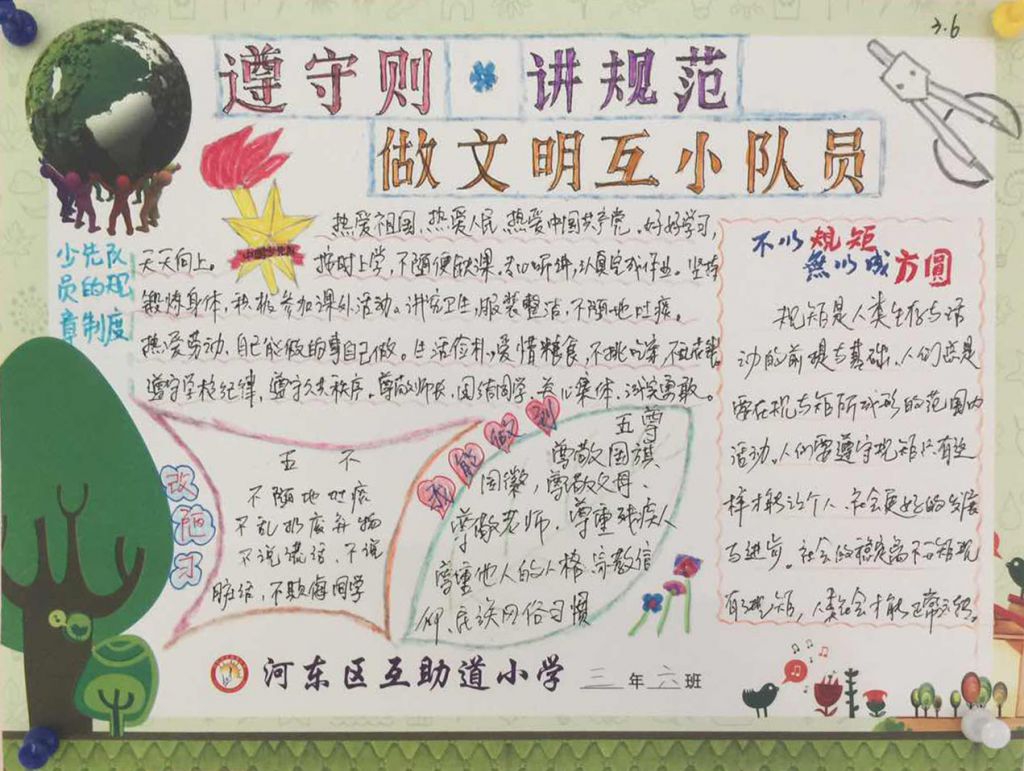 3.6
遵守则 讲规范
做文明互小队员
少先队
员的规
章制度
热爱祖国,热爱人民,热爱中国共产党。好好学习,
天天向上。
按时上学,不随便缺课。专心听讲,认真完成作业。坚持
锻炼身体,积极参加课外活动。讲究卫生,服装整洁,不随地吐痰。
热爱劳动,自己能做的事自己做。生活俭朴,爱惜粮食,不挑吃穿
遵守学校纪律,遵守公共秩序。尊敬师长,团结同学,关心集体,诚实勇敢。
不以規矩
無以成方圓
规矩是人类生存与活
动的前提与基础。人们总是
要在规与矩所成形的范围内
活动。人们需遵守规矩只有这
样才能让个人、社会更好的发展
与进步。社会的稳定离不开规
人类社会才能正常
改陋习
五不
不随地吐痰
不乱扔废弃物
不说谎话,不说
脏话,不欺侮同学
我能做到
五尊
尊敬国旗
国徽,尊敬父母、
尊敬老师、尊重残疾人
尊重他人的人格、宗教信
仰、民族风俗习惯
河东区互助道小学 三年六班